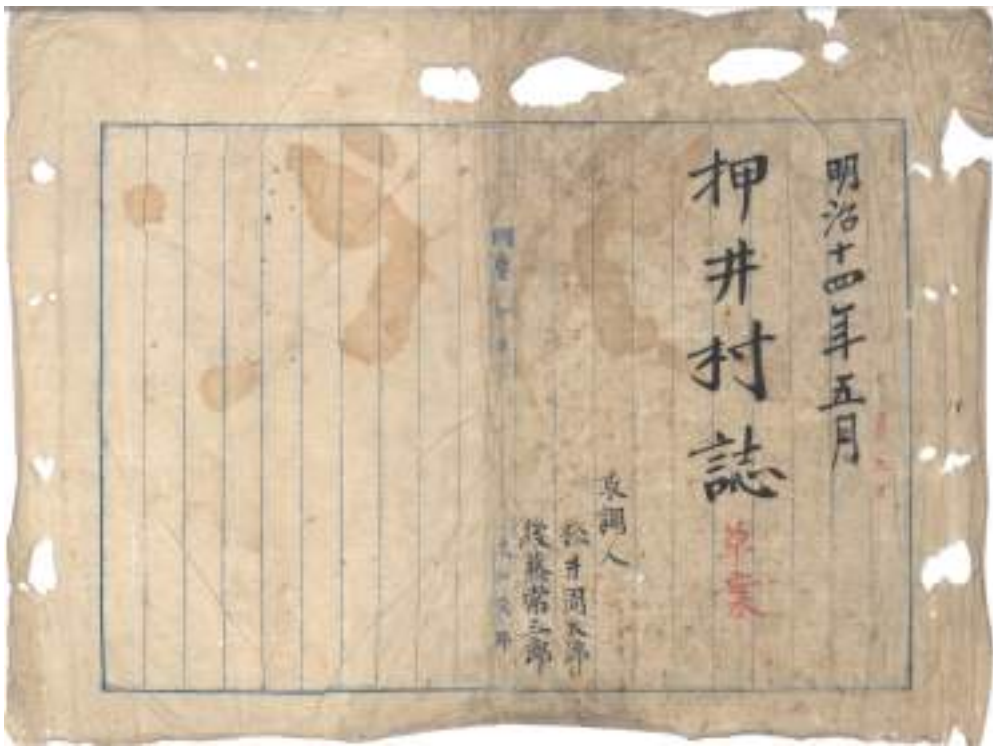 明治十四年五月
押井村誌
草案
取調人
松井周太郎
後藤常三郎